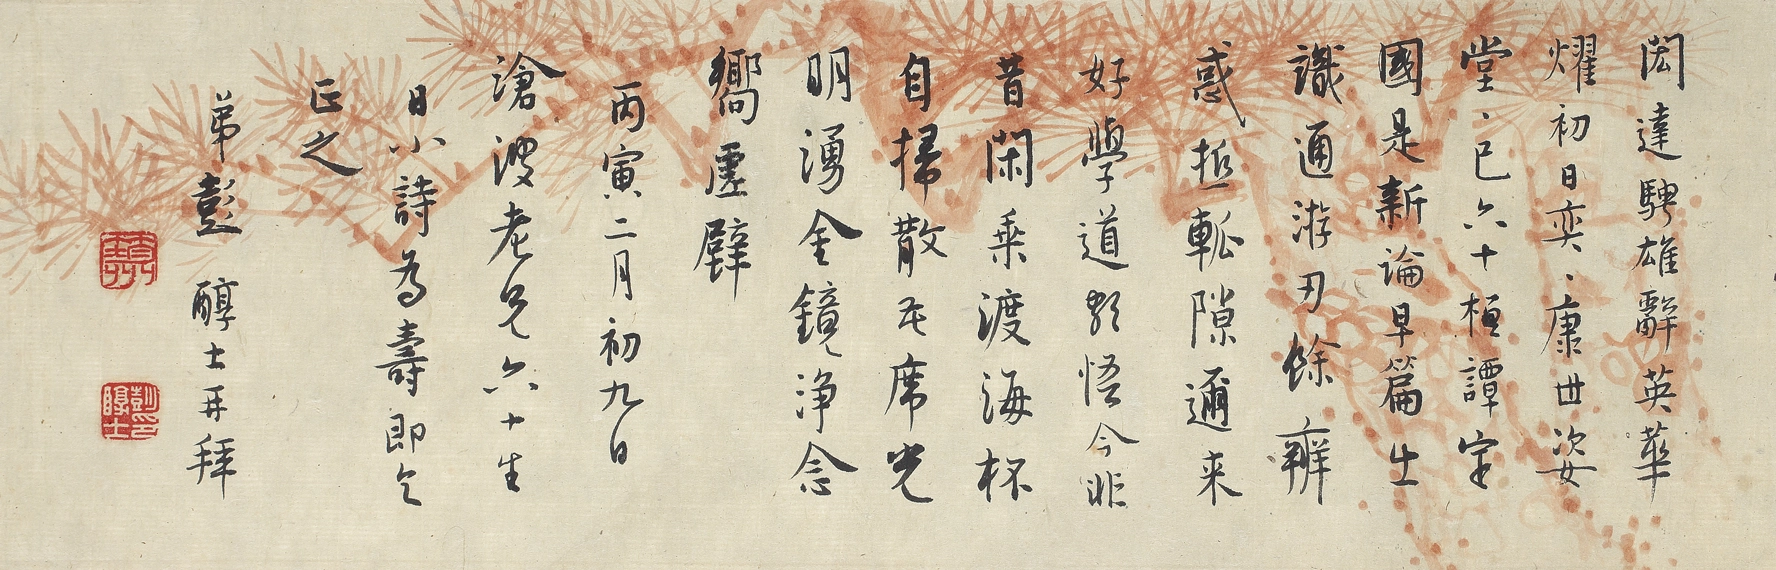 閎達騁雄辭英華
燿初日奕、康世姿
堂、已六十桓譚定
國是新論早篇出
識通游刃餘辨
惑抵軱隙邇来
好學道影悟今非
昔閑乘渡海杯
自掃散花席光
明湧金鏡淨念
嚮虛壁
丙寅二月初九日
滄波老兄六十生
日小詩為壽即乞
正之
弟彭醇士再拜
彭印醇士